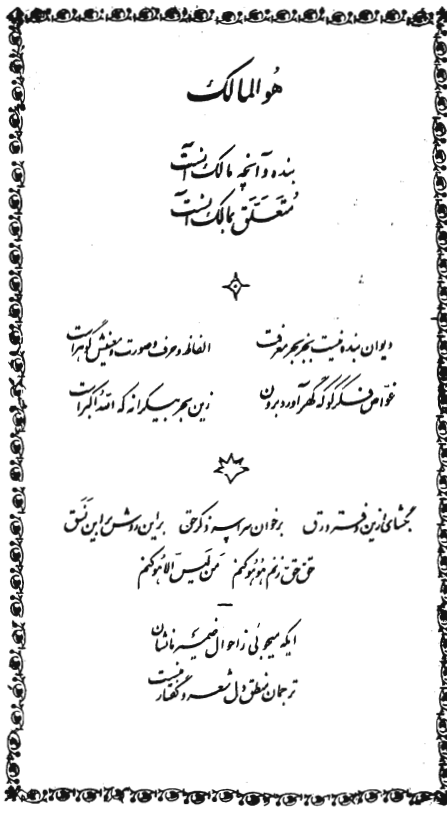 هُوَ المالک
بنده و آنچه مالک آنست
مُتَعَلَّق بمالک آنست
دیوان بنده نیست بجز بحر معرفت الفاظ و حرف و صورت و معنیش گوهر است
غوّاص فکر کو که گهر آورد برون زین بحر بیکرانه که اللّه اکبر است
بگشای زین دفتر ورق برخوان سراسر ذکر حق بر این روش بر این نَسَق
حق حق زنم هو هو کنم مَن لَیسَ الا هو کنم
ایکه میجوئی ز احوال ضمیر ما نشان
ترجمان نطق دل شعر و گفتار منست